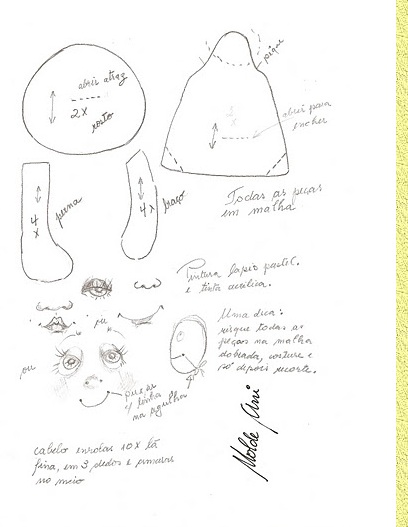 abrir atraz
2x
rosto
pique
abrir para
encher
4
x
perna
4x
braço
Todas as peças
em malha
Pintura lapis pastel.
e tinta acrilica.
ou
ou
Uma dica:
risque todas as
peças na malha
dobrada, costure e
só depois recorte.
puxar
4 linha
na agulha
cabelo enrolar 10x lã
fina, em 3 dedos e amarrar
no meio
Molde Ani